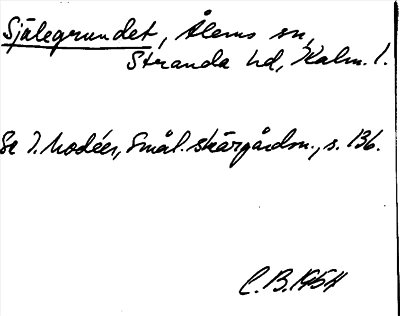 Själegrundet, Ålems sn,
Stranda hd, Kalm. l.
Se I. Modéer, Smål. skärgårdsn., s. 136.
C.B. 1954